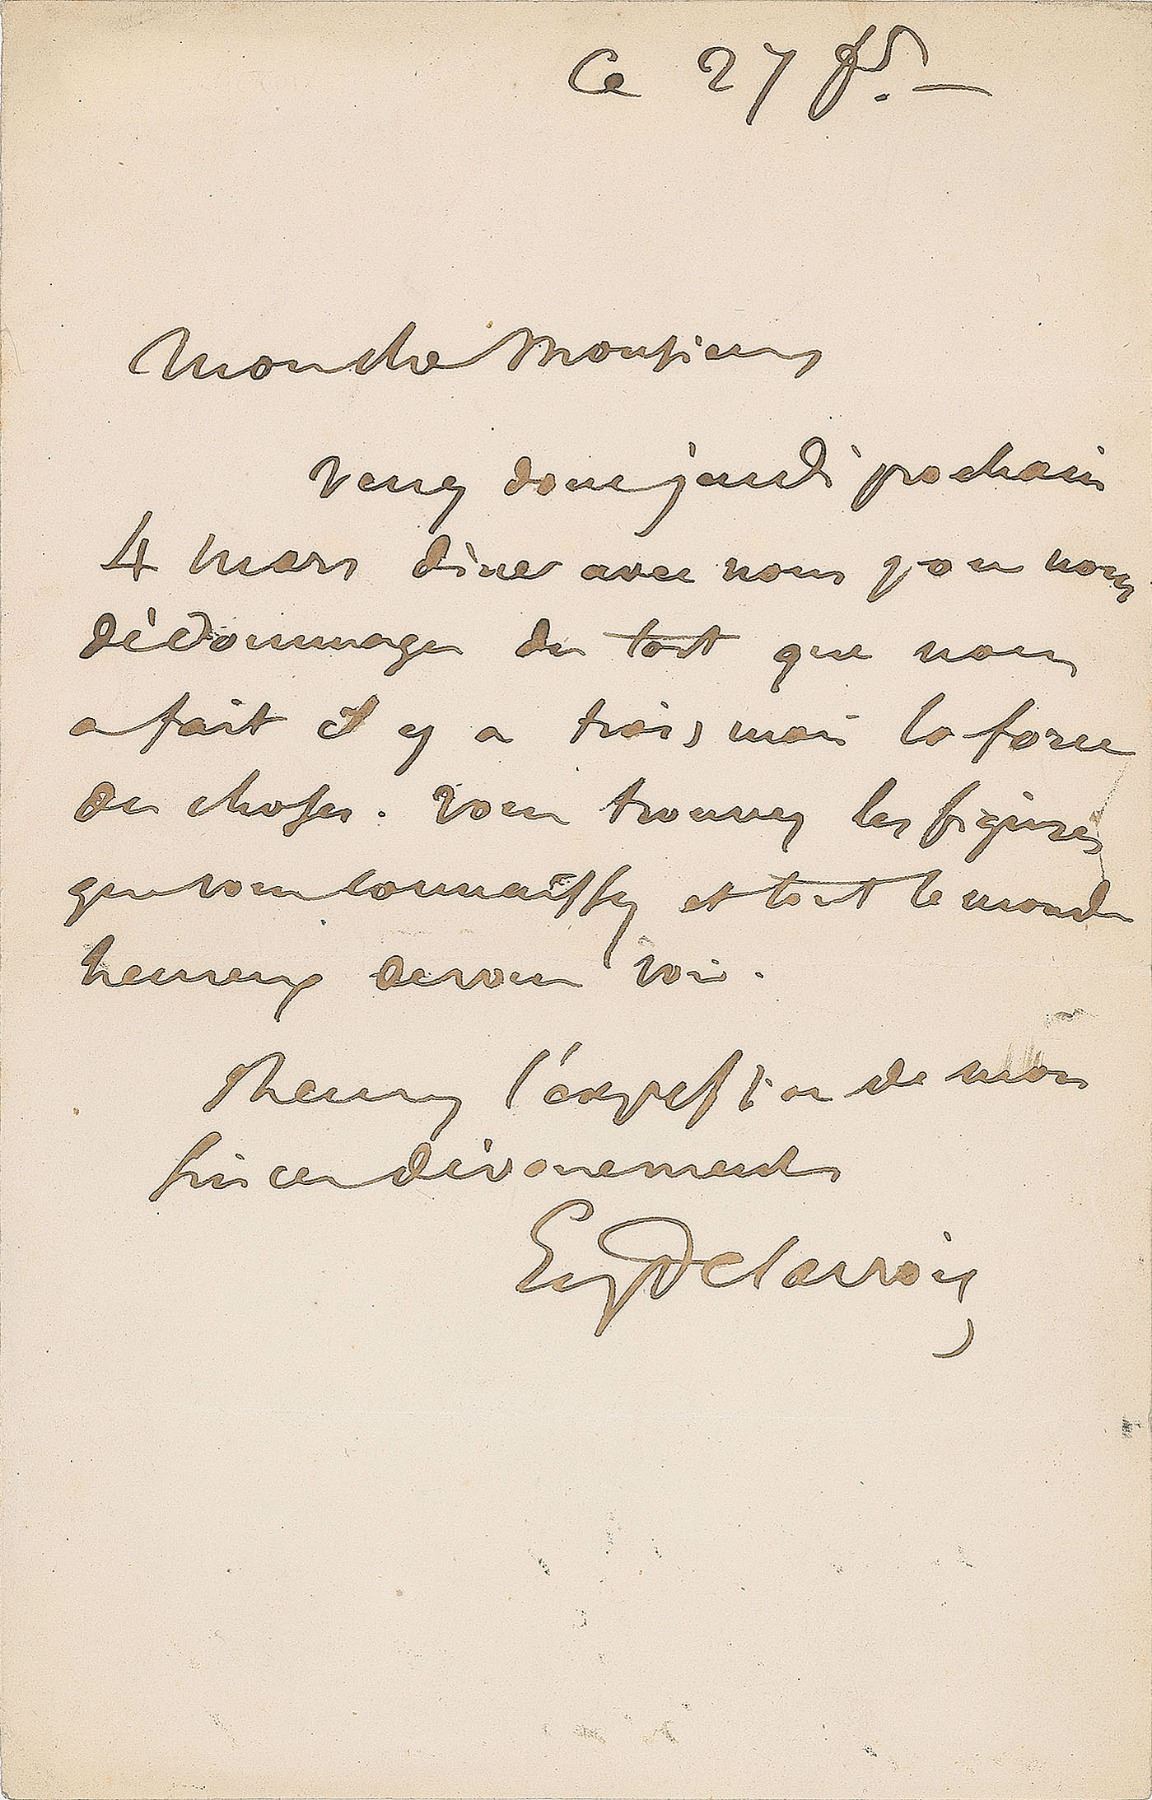 Ce 27 fr. —
Mon cher Monsieur
Venez donc jeudi prochain
4 mars dîner avec nous pour nous
dédommager du tort que nous
a fait il y a trois mois la force
des choses. Vous trouverez les figures
que vous connaissez et tout le monde
heureux de vous voir.
Recevez l'expression de mon
sincère dévouement
Eug Delacroix